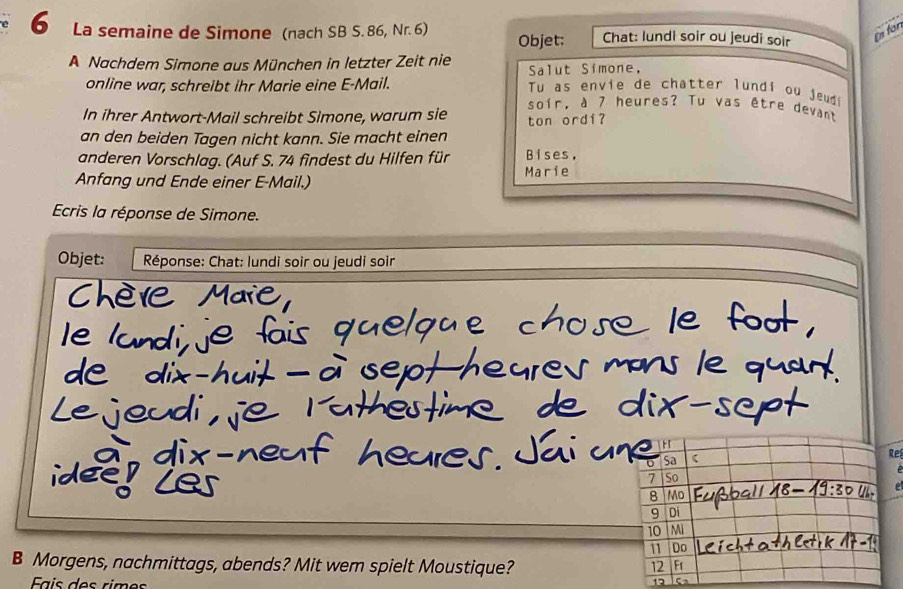 6 La semaine de Simone (nach SB S. 86, Nr. 6)
A Nachdem Simone aus München in letzter Zeit nie
online war, schreibt ihr Marie eine E-Mail.
In ihrer Antwort-Mail schreibt Simone, warum sie
an den beiden Tagen nicht kann. Sie macht einen
anderen Vorschlag. (Auf S. 74 findest du Hilfen für
Anfang und Ende einer E-Mail.)
Ecris la réponse de Simone.
Objet: Chat: lundi soir ou jeudi soir
Salut Simone,
Tu as envie de chatter lundi ou jeudi
soir, à 7 heures? Tu vas être devant
ton ordi?
Bises,
Marie
Objet: Réponse: Chat: lundi soir ou jeudi soir
Chère Marie,
le lundi, je fais quelque chose le foot,
de dix-huit - à sept-heures mons le quart.
Le jeudi, je l'athestime de dix-sept
à dix-neuf heures. J'ai une
idée! Les
Fr
6 Sa
7 So
8 Mo Fußball 18-19:30 Uhr
9 Di
10 Mi
11 Do Leichtathletik 17-19
12 Fr
13 Sa
B Morgens, nachmittags, abends? Mit wem spielt Moustique?
Fais des rimes